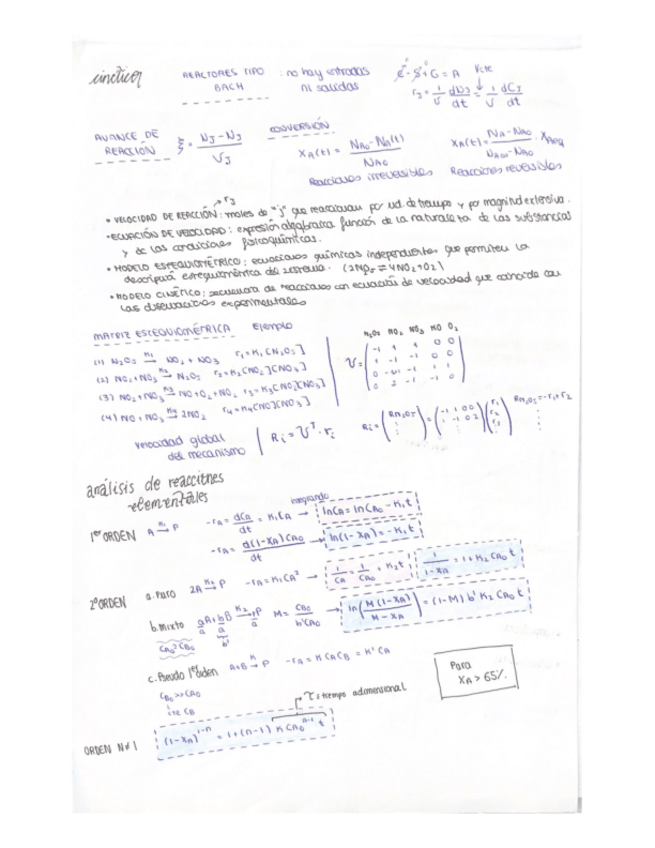 cinética
REACTORES TIPO BACH : no hay entradas ni salidas
E - S + G = A
V cte
r_J = 1/V dN_J/dt = 1/V dC_J/dt
AVANCE DE REACCIÓN
ξ = (N_J - N_J)/ν_J
CONVERSIÓN
X_A(t) = (N_A0 - N_A(t))/N_A0
Reacciones irreversibles
X_A(t) = (N_A - N_A0)/(N_A∞ - N_A0) · X_Aeq
Reacciones reversibles
r_J
• VELOCIDAD DE REACCIÓN: moles de "j" que reaccionan por ud. de tiempo y por magnitud extensiva.
• ECUACIÓN DE VELOCIDAD: expresión algebraica función de la naturaleza de las substancias
y de las condiciones fisicoquímicas.
• MODELO ESTEQUIOMÉTRICO: ecuaciones químicas independientes que permiten la
descripción estequiométrica del sistema. (2N2O5 ⇌ 4NO2 + O2)
• MODELO CINÉTICO: secuencia de reacciones con ecuación de velocidad que coincide con
las observaciones experimentales
MATRIZ ESTEQUIOMÉTRICA Ejemplo
(1) N2O5 →K1 NO2 + NO3 r1 = K1[N2O5]
(2) NO2 + NO3 →K2 N2O5 r2 = K2[NO2][NO3]
(3) NO2 + NO3 →K3 NO + O2 + NO2 r3 = K3[NO2][NO3]
(4) NO + NO3 →K4 2NO2 r4 = K4[NO][NO3]
N2O5 NO2 NO3 NO O2
ν =
-1 1 1 0 0
1 -1 -1 0 0
0 -1+1 -1 1 1
0 2 -1 -1 0
velocidad global del mecanismo
R_i = ν^T · r_i
R_i = (R_N2O5 ⋮) = (-1 1 0 0
1 -1 0 2) (r1 r2 r3 ⋮)
R_N2O5 = -r1 + r2
análisis de reacciones
elementales
1er ORDEN A →K1 P -r_A = dC_A/dt = K1 C_A → integrando ln C_A = ln C_A0 - K1 t
-r_A = d(1-X_A)C_A0/dt → ln(1-X_A) = -K1 t
2º ORDEN a. Puro 2A →K2 P -r_A = K2 C_A² → 1/C_A = 1/C_A0 + K2 t
1/(1-X_A) = 1 + K2 C_A0 t
b. Mixto a/a A + b/a B →K2 p/a P
b'
M = C_B0/(b' C_A0) → ln(M(1-X_A)/(M-X_A)) = (1-M) b' K2 C_A0 t
C_A0 ≠ C_B0
c. Pseudo 1er orden A+B →K P -r_A = K C_A C_B = K' C_A
C_B0 >> C_A0
↓
cte C_B
Para
X_A > 65%.
τ: tiempo adimensional
ORDEN N≠1 (1-X_A)^(1-n) = 1 + (n-1) K C_A0^(n-1) t